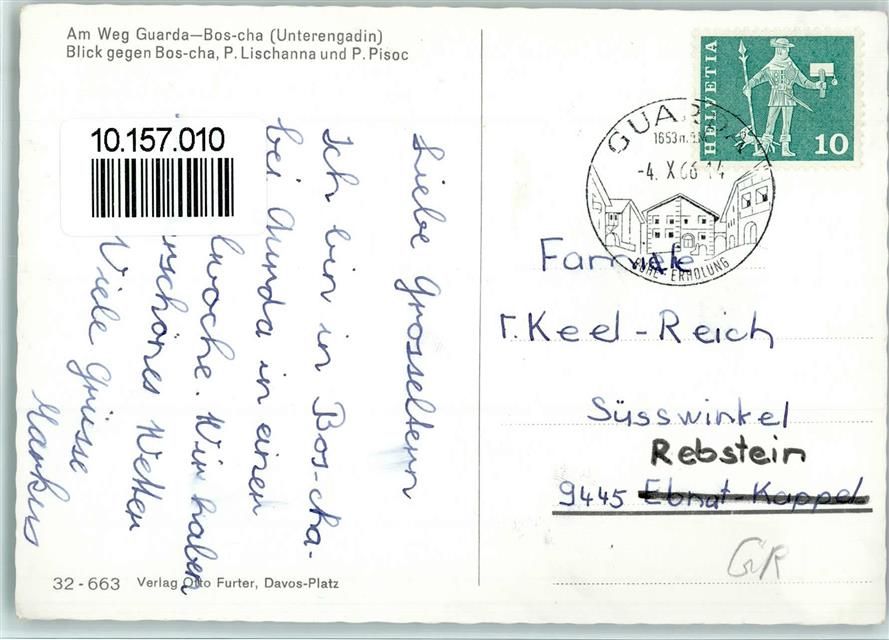 Am Weg Guarda—Bos-cha (Unterengadin)
Blick gegen Bos-cha, P. Lischanna und P. Pisoc
10.157.010
Liebe Grosseltern
Ich bin in Bos-cha-
bei Guarda in einer
woche. Wir haben
schönes Wetter
Viele Grüsse
Markus
32-663 Verlag Otto Furter, Davos-Platz
HELVETIA
10
GUARDA
1653 m.ü.M.
-4. X 66 14
RUHE ERHOLUNG
Familie
T. Keel-Reich
Süsswinkel
Rebstein
9445 Ebnat-Kappel
GR